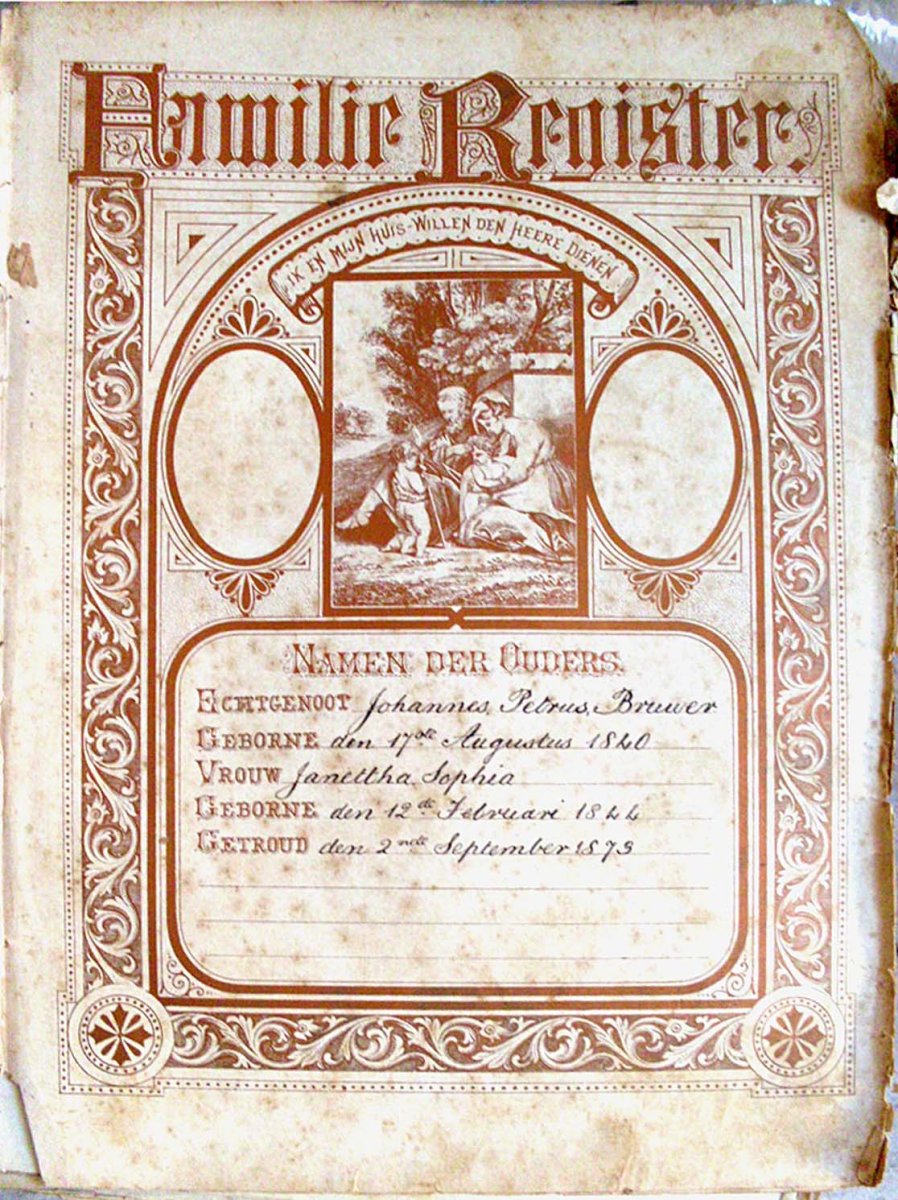 Familie Register.
IK EN MIJN HUIS-WILLEN DEN HEERE DIENEN
NAMEN DER OUDERS.
ECHTGENOOT Johannes, Petrus, Bruwer
GEBORNE den 17de Augustus 1840
VROUW Janettha Sophia
GEBORNE den 12de Februari 1844
GETROUD den 2nde September 1873